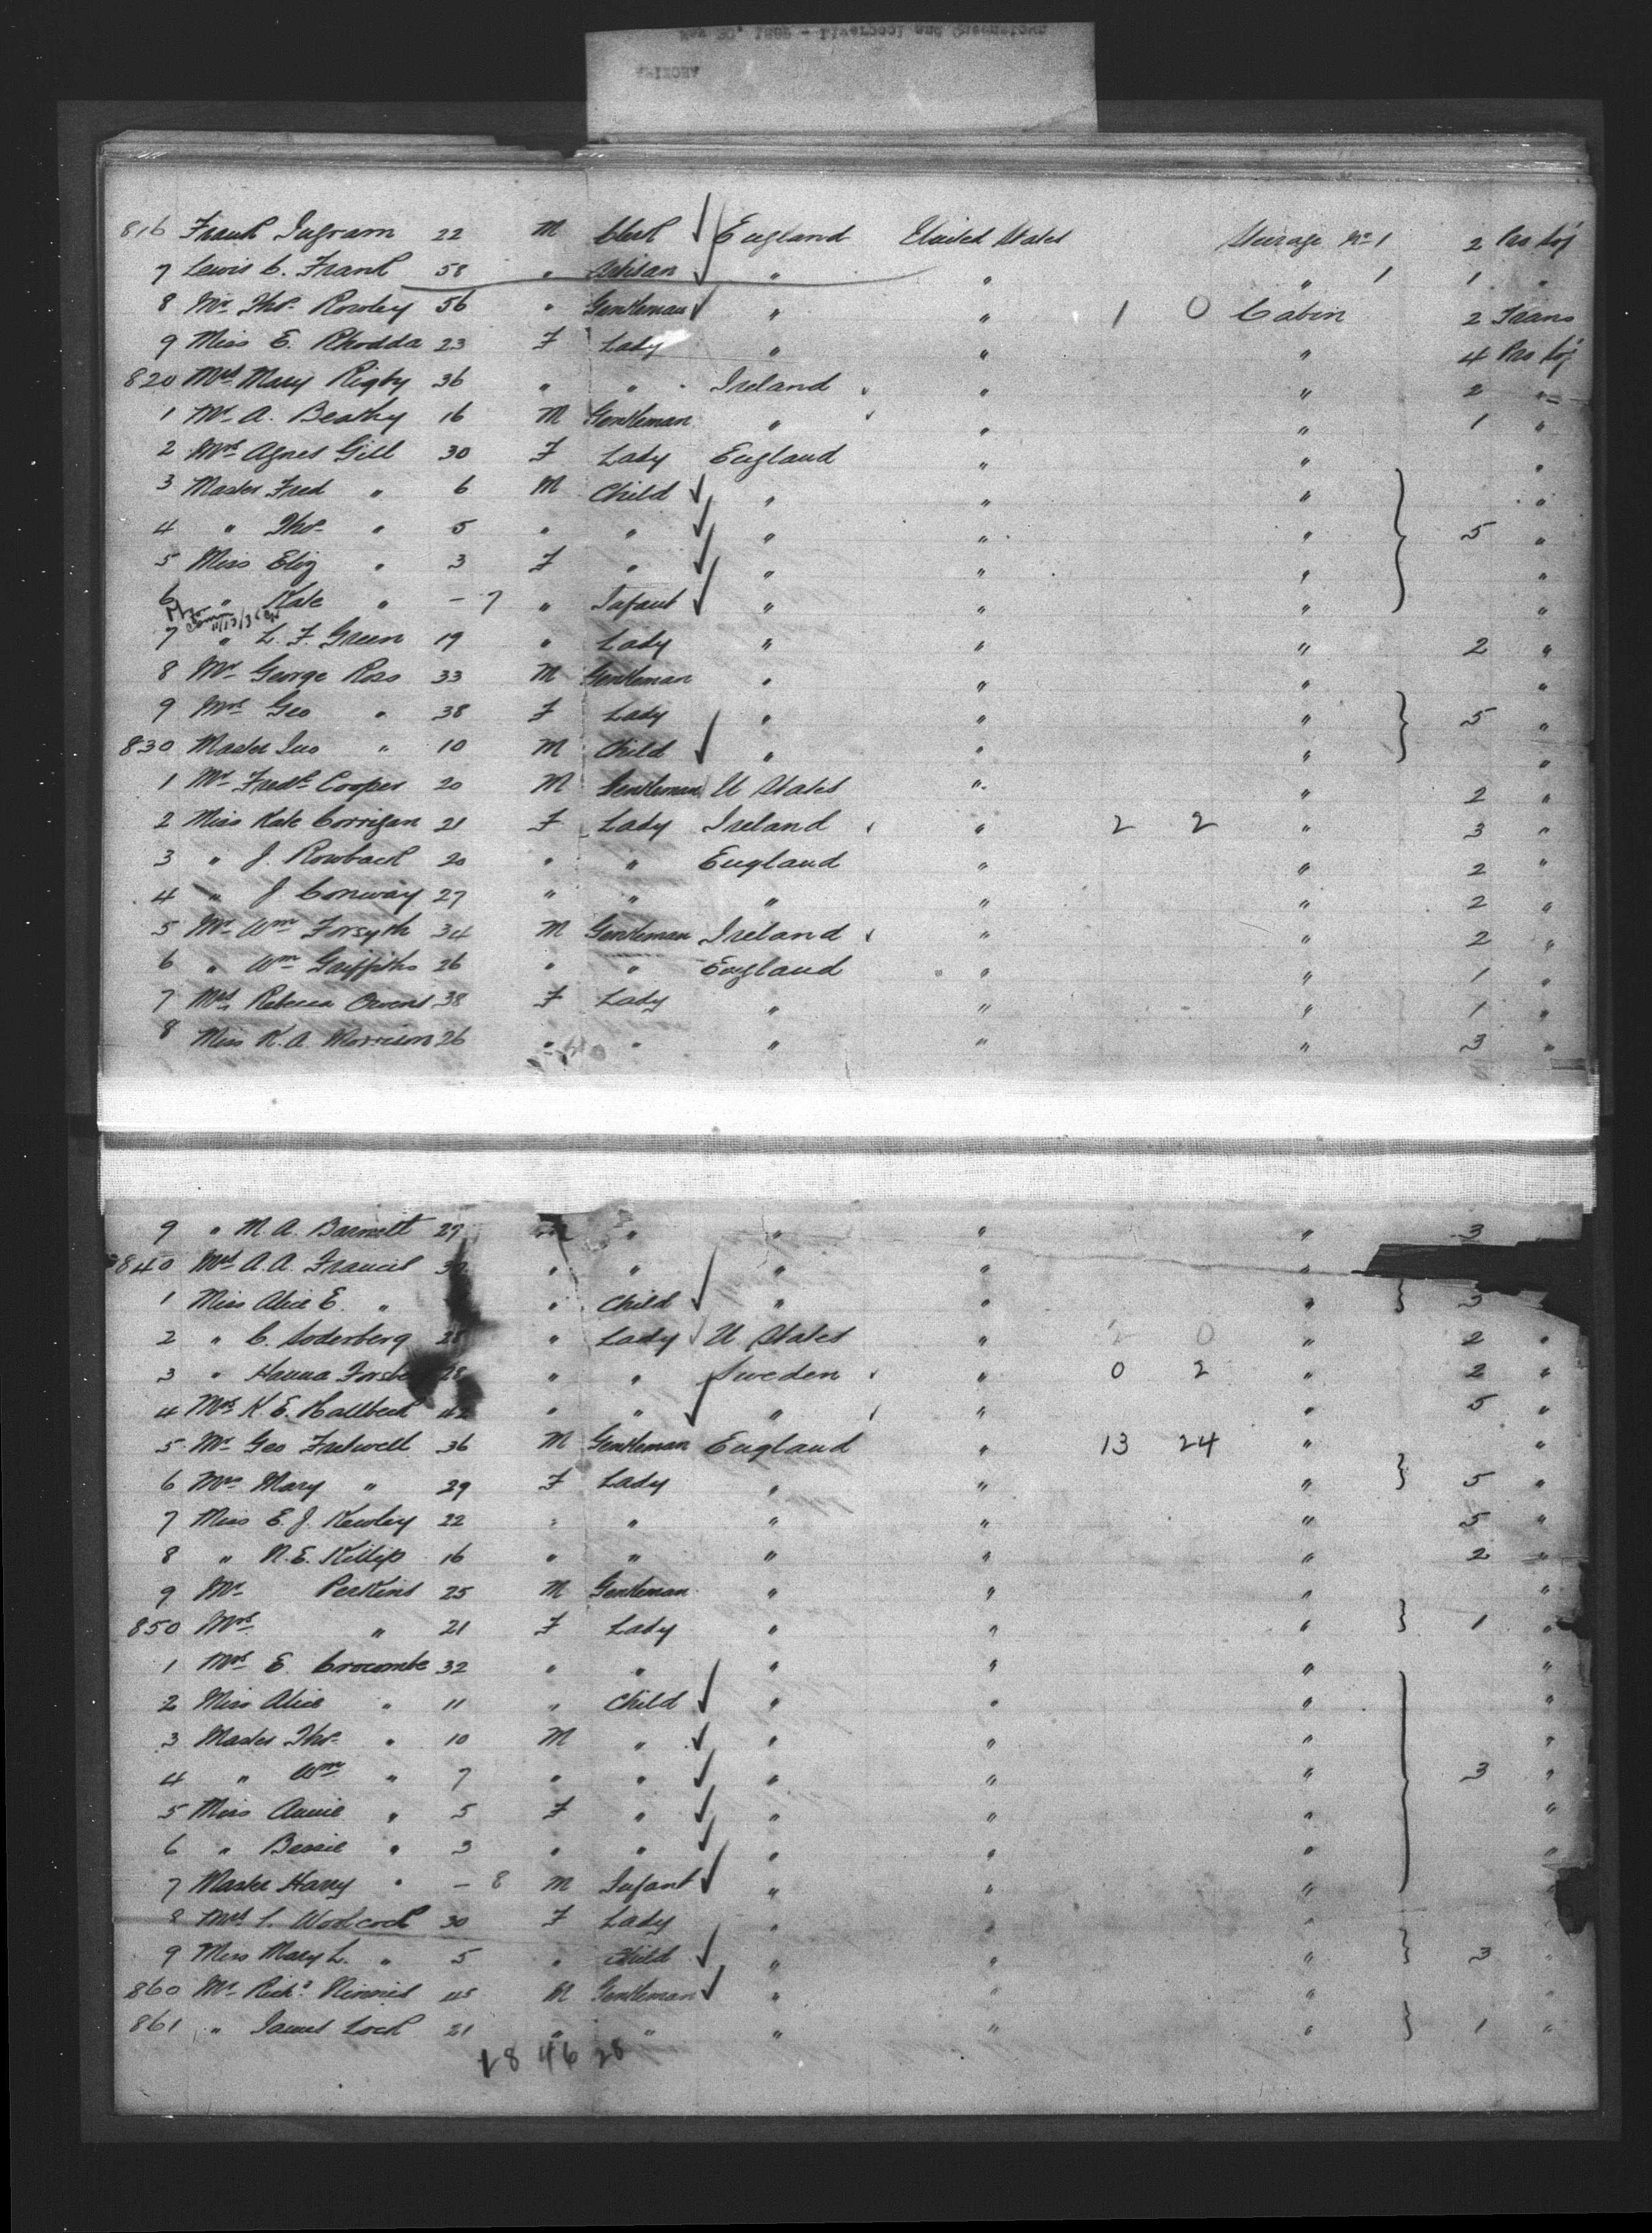 816 Frank Ingram 22 M Clerk England United States Steerage No 1 2 Pro Soj
7 Lewis C. Frank 58 " Artisan " " " 1 1 "
8 Mr Thos. Rowley 56 " Gentleman " " 1 0 Cabin 2 Trans
9 Miss E. Rhodda 23 F Lady " " " 4 Pro Soj
820 Mrs Mary Rigby 36 " " Ireland " " 2 "
1 Mr A. Beatty 16 M Gentleman " " " 1 "
2 Mrs Agnes Gill 30 F Lady England " " "
3 Master Fred " 6 M Child " " " "
4 " Thos. " 5 " " " " " 5 "
5 Miss Eliz " 3 F " " " " "
6 " Kate " - 7 " Infant " " " "
7 " L. F. Green 19 " Lady " " " 2 "
8 Mr George Ross 33 M Gentleman " " " "
9 Mrs Geo " 38 F Lady " " " 5 "
830 Master Jno " 10 M Child " " " "
1 Mr Fredk Cooper 20 M Gentleman U States " " 2 "
2 Miss Kate Corrigan 21 F Lady Ireland " 2 2 " 3 "
3 " J. Rowback 20 " " England " " 2 "
4 " J Conway 27 " " " " " 2 "
5 Mr Wm Forsyth 34 M Gentleman Ireland " " 2 "
6 " Wm Griffiths 26 " " England " " 1 "
7 Mrs Rebecca Owens 38 F Lady " " " 1 "
8 Miss K. A. Morrison 26 " " " " " 3 "
9 " M. A. Barnett 27 " " " " 3
840 Mrs A. A. Francis " " " " "
1 Miss Alice E. " " Child " " " 3
2 " C. Soderberg 28 " Lady U. States " 2 0 " 2 "
3 " Hanna 28 " " Sweden " 0 2 " 2 "
4 Mrs K. E. Hallbeck 42 " " " " " 5 "
5 Mr Geo Fretwell 36 M Gentleman England " 13 24 " "
6 Mrs Mary " 29 F Lady " " " 5 "
7 Miss E. J. Kewley 22 " " " " " 5 "
8 " N. E. Killip 16 " " " " " 2 "
9 Mr Perkins 25 M Gentleman " " " "
850 Mrs " 21 F Lady " " " 1 "
1 Mrs E. Crocombe 32 " " " " " "
2 Miss Alice " 11 " Child " " " "
3 Master Thos. " 10 M " " " " "
4 " Wm " 7 " " " " " 3 "
5 Miss Annie " 5 F " " " " "
6 " Bessie " 3 " " " " " "
7 Master Harry " - 8 M Infant " " " "
8 Mrs Woolcock 30 F Lady " " "
9 Miss Mary L. " 5 " Child " " " 3 "
860 Mr Richd Ninnis 45 M Gentleman " " " "
861 " James Lock 21 " " " " " 1 "
18 46 28